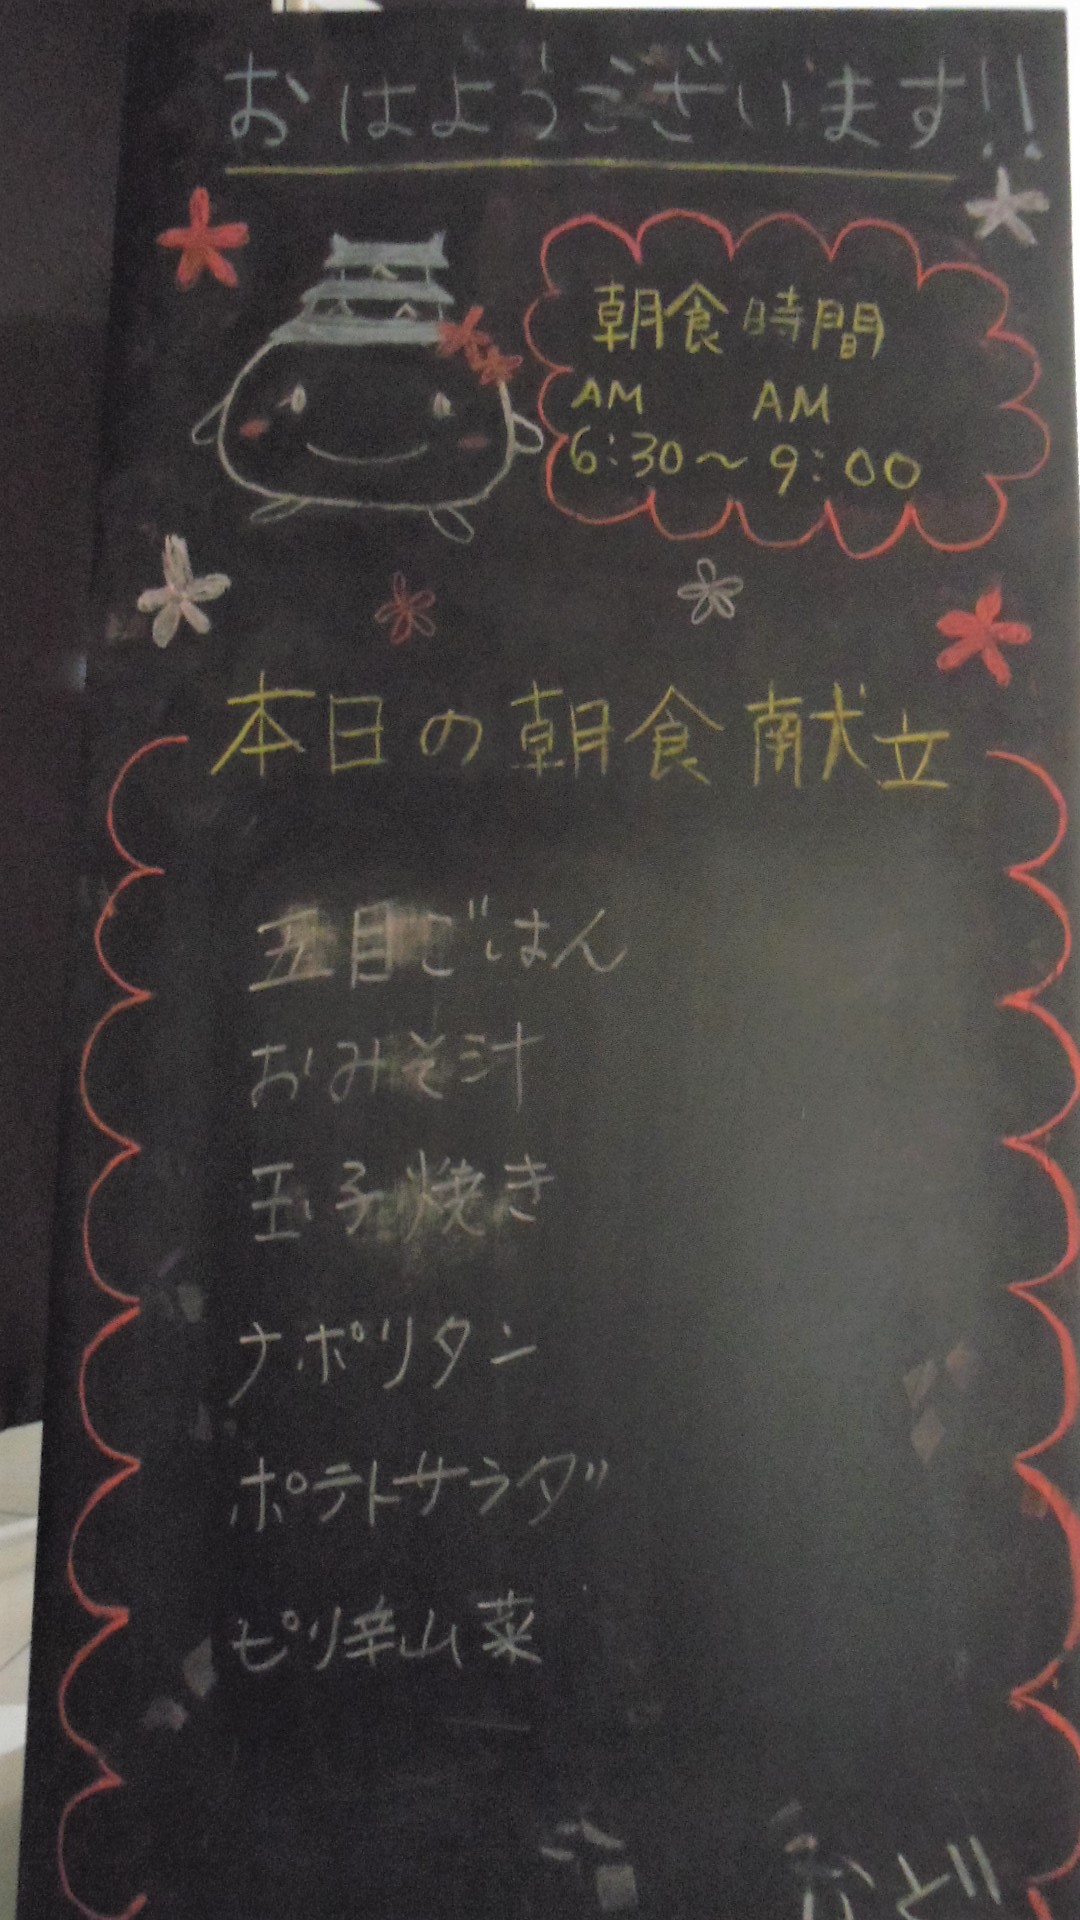 おはようございます!!
朝食時間
AM AM
6:30~9:00
本日の朝食献立
五目ごはん
おみそ汁
玉子焼き
ナポリタン
ポテトサラダ
ピリ辛山菜